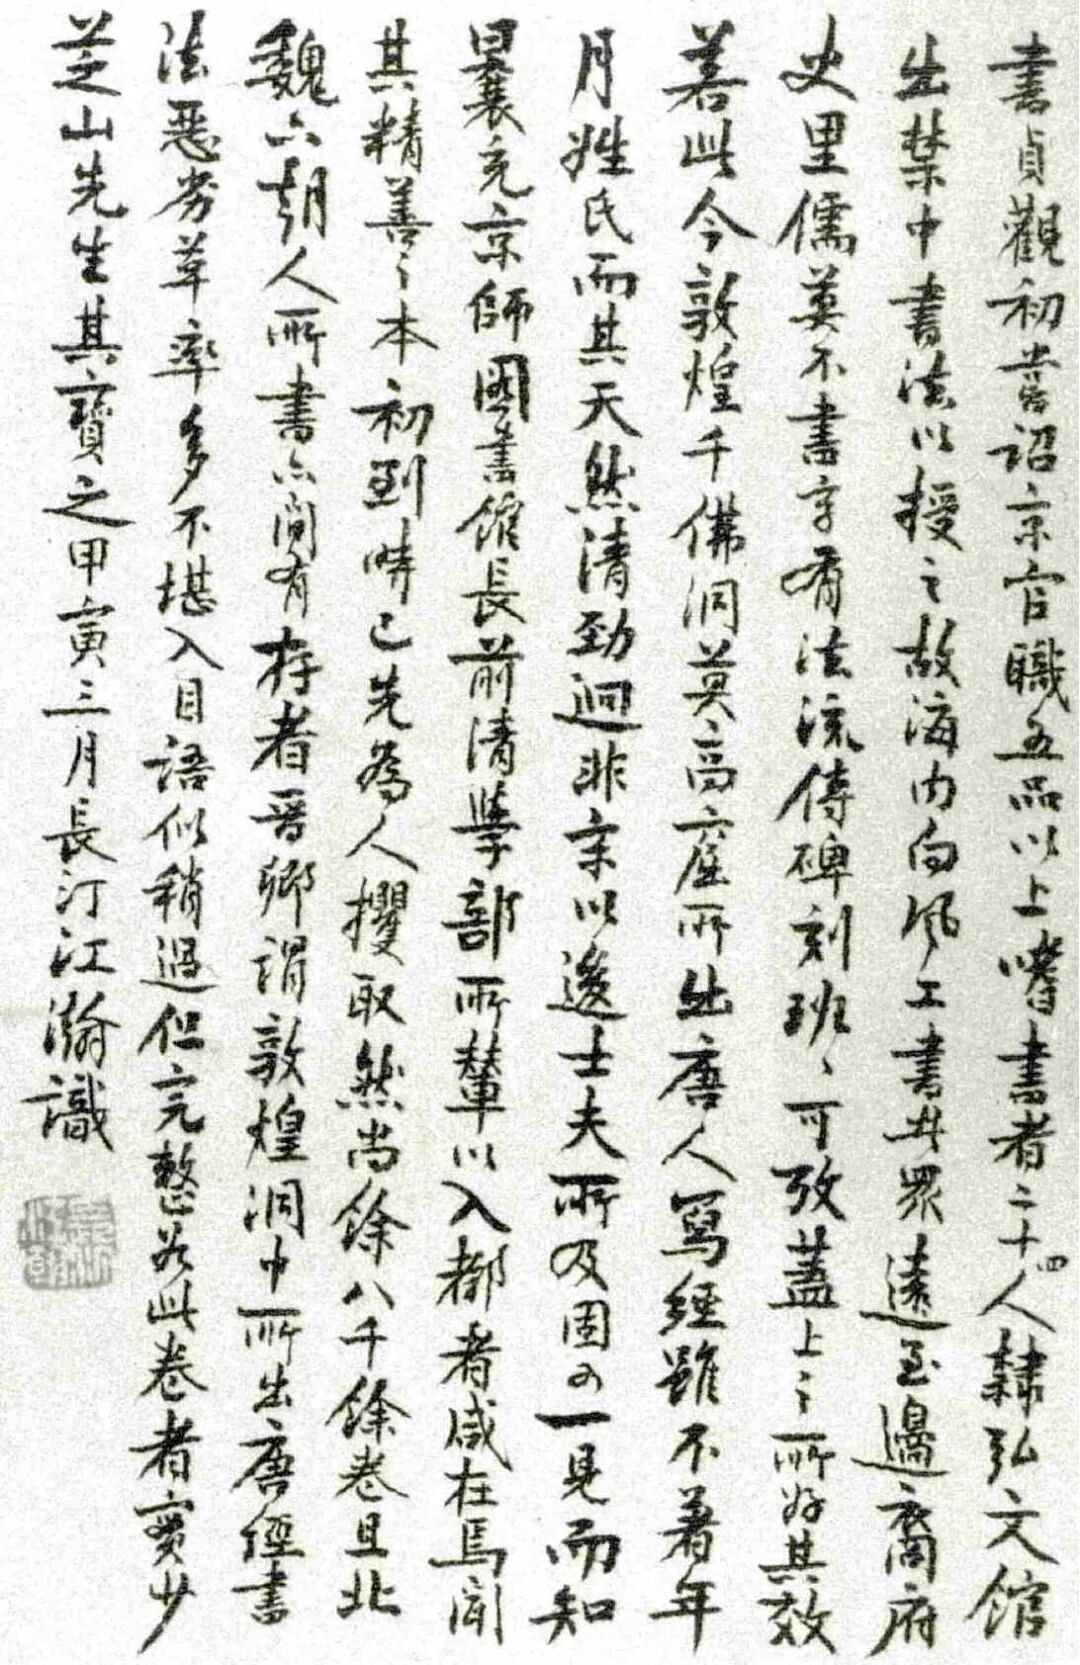 書貞觀初嘗詔京官職五品以上嗜書者二十四人隸弘文館
出禁中書法以授之故海內向風工書者眾遠至邊裔府
史里儒莫不書字有法流傳碑刻班〻可攷蓋上之所好其效
若此今敦煌千佛洞莫高窟所出唐人寫經雖不著年
月姓氏而其天然清勁迥非宋以後士夫所及固可一見而知
曩充京師圖書館長前清學部所輦以入都者咸在焉聞
其精善之本初到時已先為人攫取然尚餘八千餘卷且北
魏六朝人所書亦間有存者晉卿謂敦煌洞中所出唐經書
法惡劣草率多不堪入目語似稍過但完整若此卷者實少
芝山先生其寶之甲寅三月長汀江瀚識